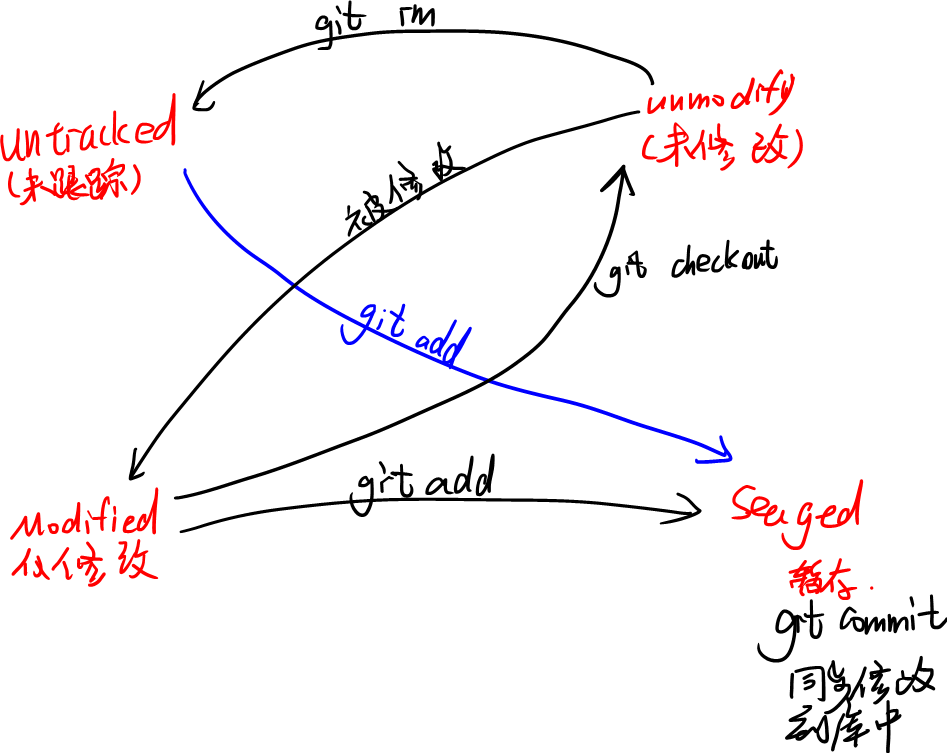 git rm
untracked
(未跟踪)
unmodify
(未修改)
被修改
git checkout
git add
git add
Modified
仅修改
Seaged
暂存.
git commit
同步修改
到库中